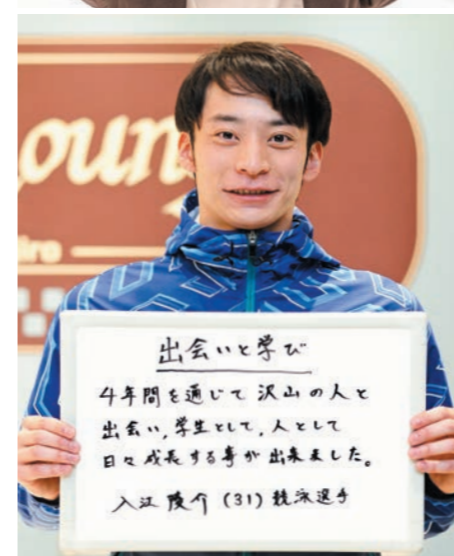 oun
iro
出会いと学び
4年間を通じて沢山の人と
出会い,学生として,人として
日々成長する事が出来ました。
入江陵介(31)競泳選手